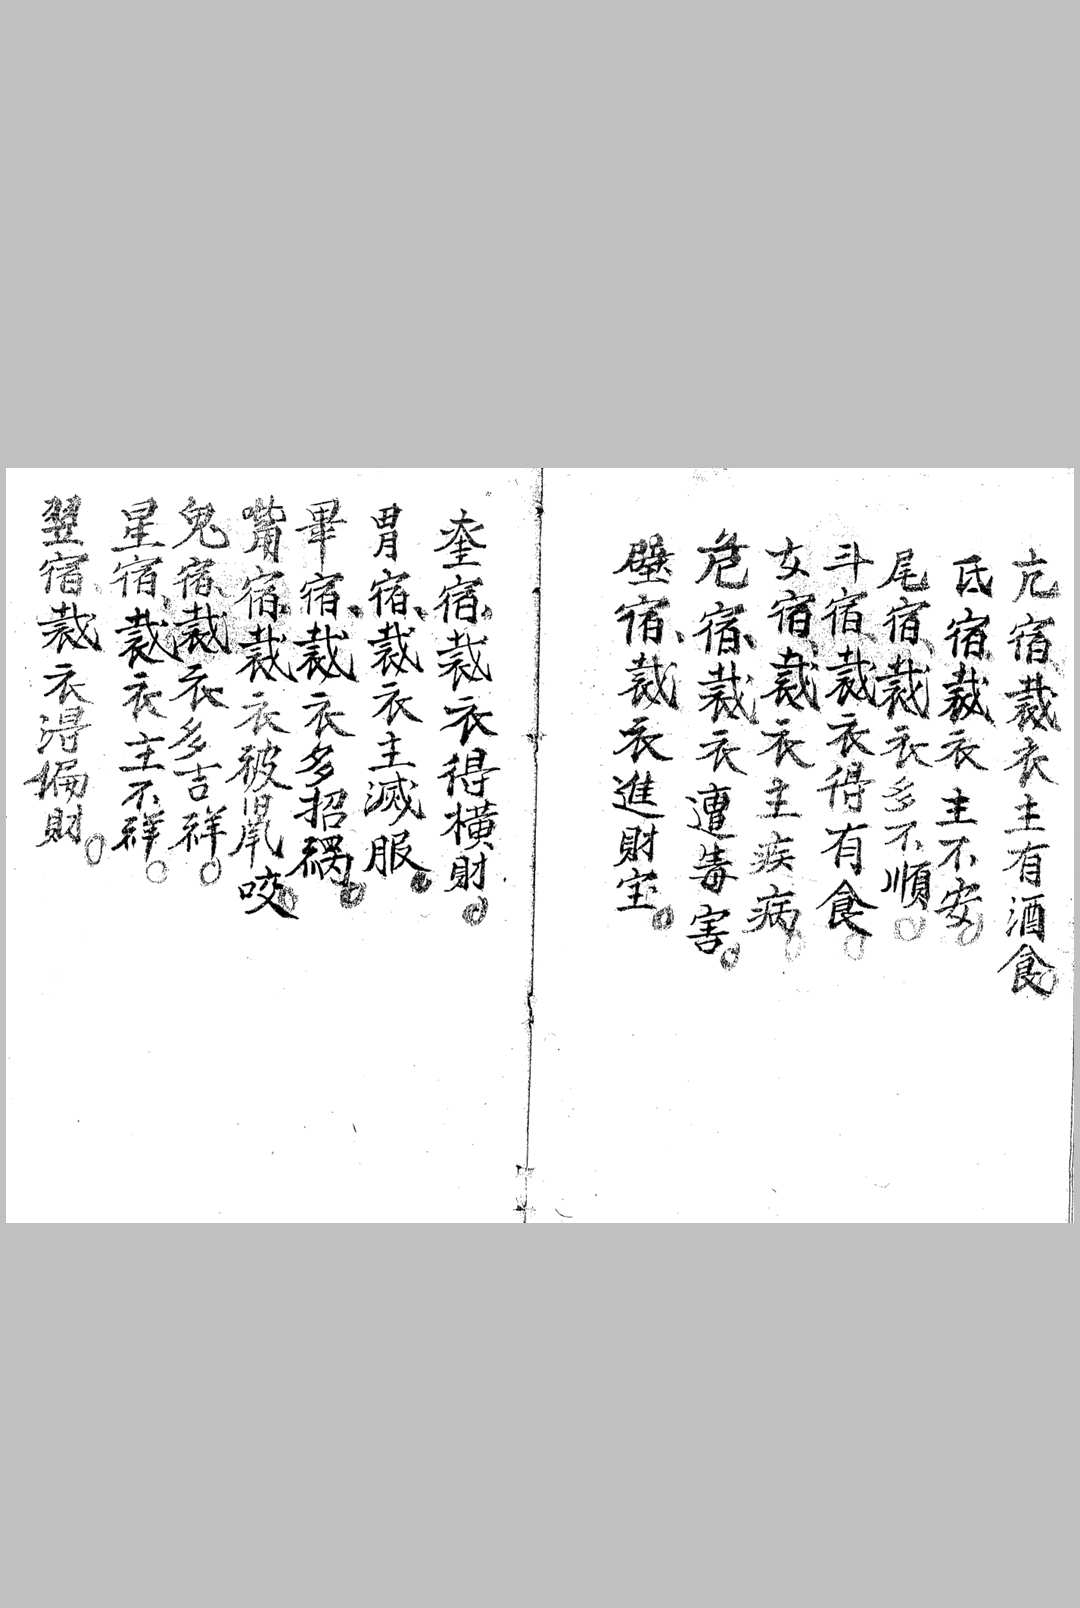 亢宿、裁衣主有酒食。
氐宿裁衣主不安。
尾宿、裁衣多不順。
斗宿裁衣得有食。
女宿、裁衣主疾病。
危宿、裁衣遭毒害。
壁宿、裁衣進財宝。
奎宿、裁衣得横財。
胃宿、裁衣主滅服。
畢宿、裁衣多招禍。
觜宿、裁衣被鼠咬。
鬼宿、裁衣多吉祥。
星宿、裁衣主不祥。
翌宿裁衣得偏財。